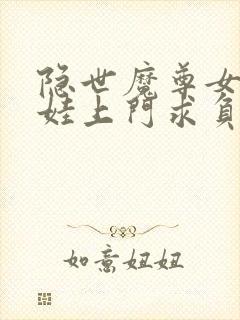 隐世魔尊女
娃上门求负
如意妞妞